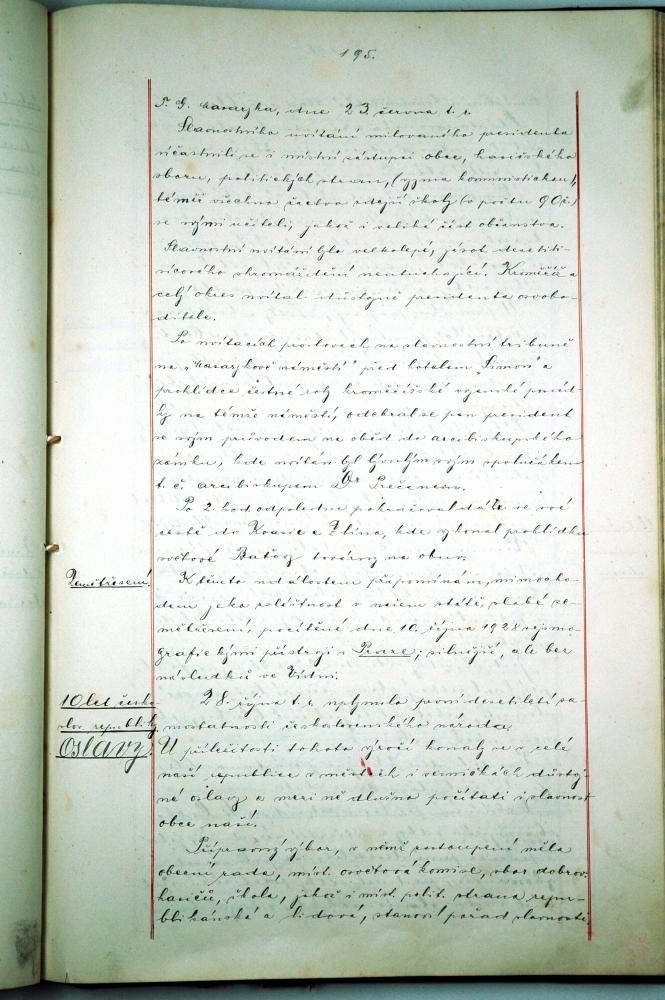 195.
T. G. Masaryka, dne 23 června t. r.
Slavnostního uvítání milovaného presidenta
súčastnili se i místní zástupci obce, hasičského
sboru, politických stran, (vyjma komunistickou),
téměř všechna žactva zdejší školy (v počtu 90ti)
se svými učiteli, jakož i veliká část občanstva.
Slavnostní uvítání bylo velkolepé, jásot desetiti-
sícového shromáždění neutuchající. Kroměříž a
celý okres uvítal důstojně presidenta osvobo-
ditele.
Po uvítacích proslovech na slavnostní tribuně
na „Masarykově náměstí" před hotelem Simon a
prohlídce čestné roty kroměřížské vojenské posád-
ky na témže náměstí, odebral se pan president
se svým průvodem na oběd do arcibiskupského
zámku, kde uvítán byl bývalým svým spolužákem
t. č. arcibiskupem Dr Prečanem.
Po 2. hod. odpoledne pokračoval dále ve své
cestě do Kvasic a Zlína, kde vykonal prohlídku
světové Baťovy továrny na obuv.
Zemětřesení.
K těmto událostem připomínám, mimocho-
dem jako zvláštnost v našem státě, slabé ze-
mětřesení, pocítěné dne 10. října 1928 seismo-
grafickými přístroji v Praze, silnější, ale bez
následků ve Vídni.
10 let česko-
slov. republiky
Oslavy.
28. října t. r. uplynulo první desetiletí sa-
mostatnosti československého národa.
U příležitosti tohoto výročí konaly se v celé
naší republice v městech i vesničkách důstoj-
né oslavy a mezi ně dlužno počítati i slavnost
obce naší.
Přípravný výbor, v němž zastoupení měla
obecní rada, míst. osvětová komise, sbor dobrov.
hasičů, škola, jakož i míst. polit. strana repu-
blikánská a lidová, stanoví pořad slavnosti